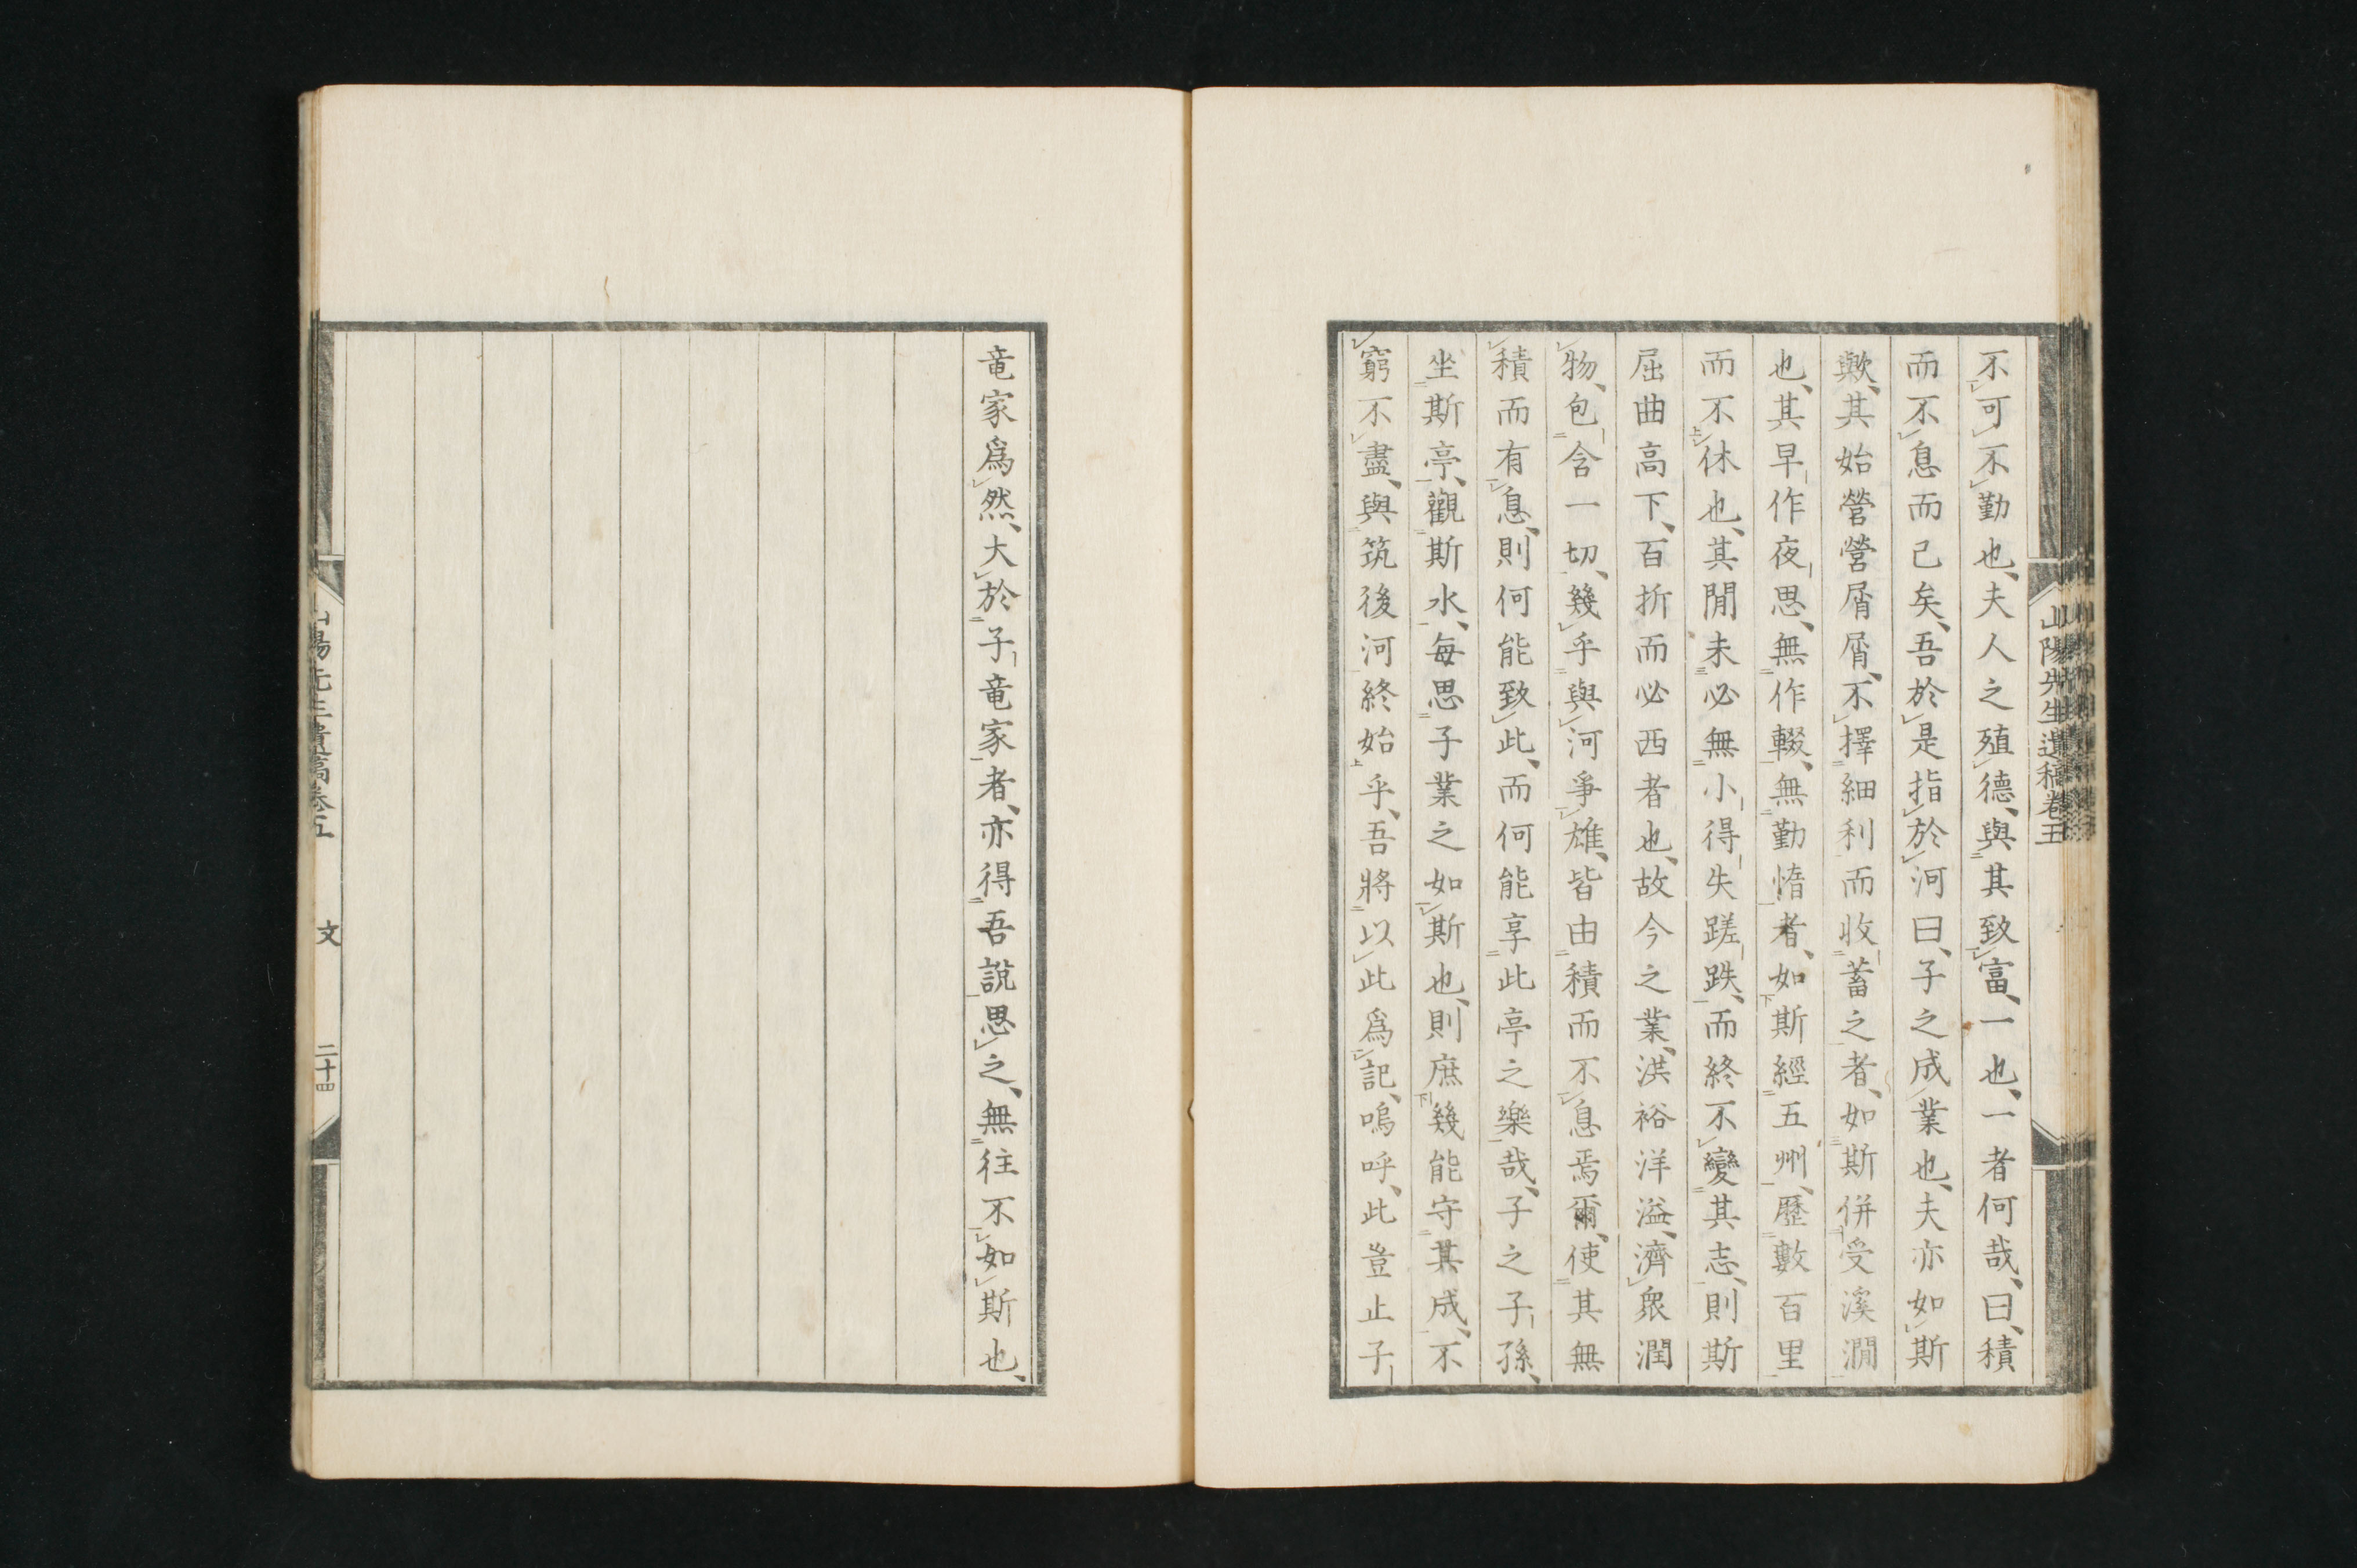 山陽先生遺稿卷五
不可不勤也、夫人之殖德、與其致富、一也、一者何哉、曰、積
而不息而已矣、吾於是指於河曰、子之成業也、夫亦如斯
歟、其始營營屑屑、不擇細利而收蓄之者、如斯併受溪澗
也、其早作夜思、無作輟、無勤惰者、如斯經五州、歷數百里
而不休也、其閒未必無小得失蹉跌、而終不變其志、則斯
屈曲高下、百折而必西者也、故今之業、洪裕洋溢、濟衆潤
物、包含一切、幾乎與河爭雄、皆由積而不息焉爾、使其無
積而有息、則何能致此、而何能享此亭之樂哉、子之子孫、
坐斯亭、觀斯水、每思子業之如斯也、則庶幾能守其成、不
窮不盡、與筑後河終始乎、吾將以此爲記、嗚呼、此豈止子
竜家爲然、大於子竜家者、亦得吾說思之、無往不如斯也、
山陽先生遺稿卷五　文　二十四